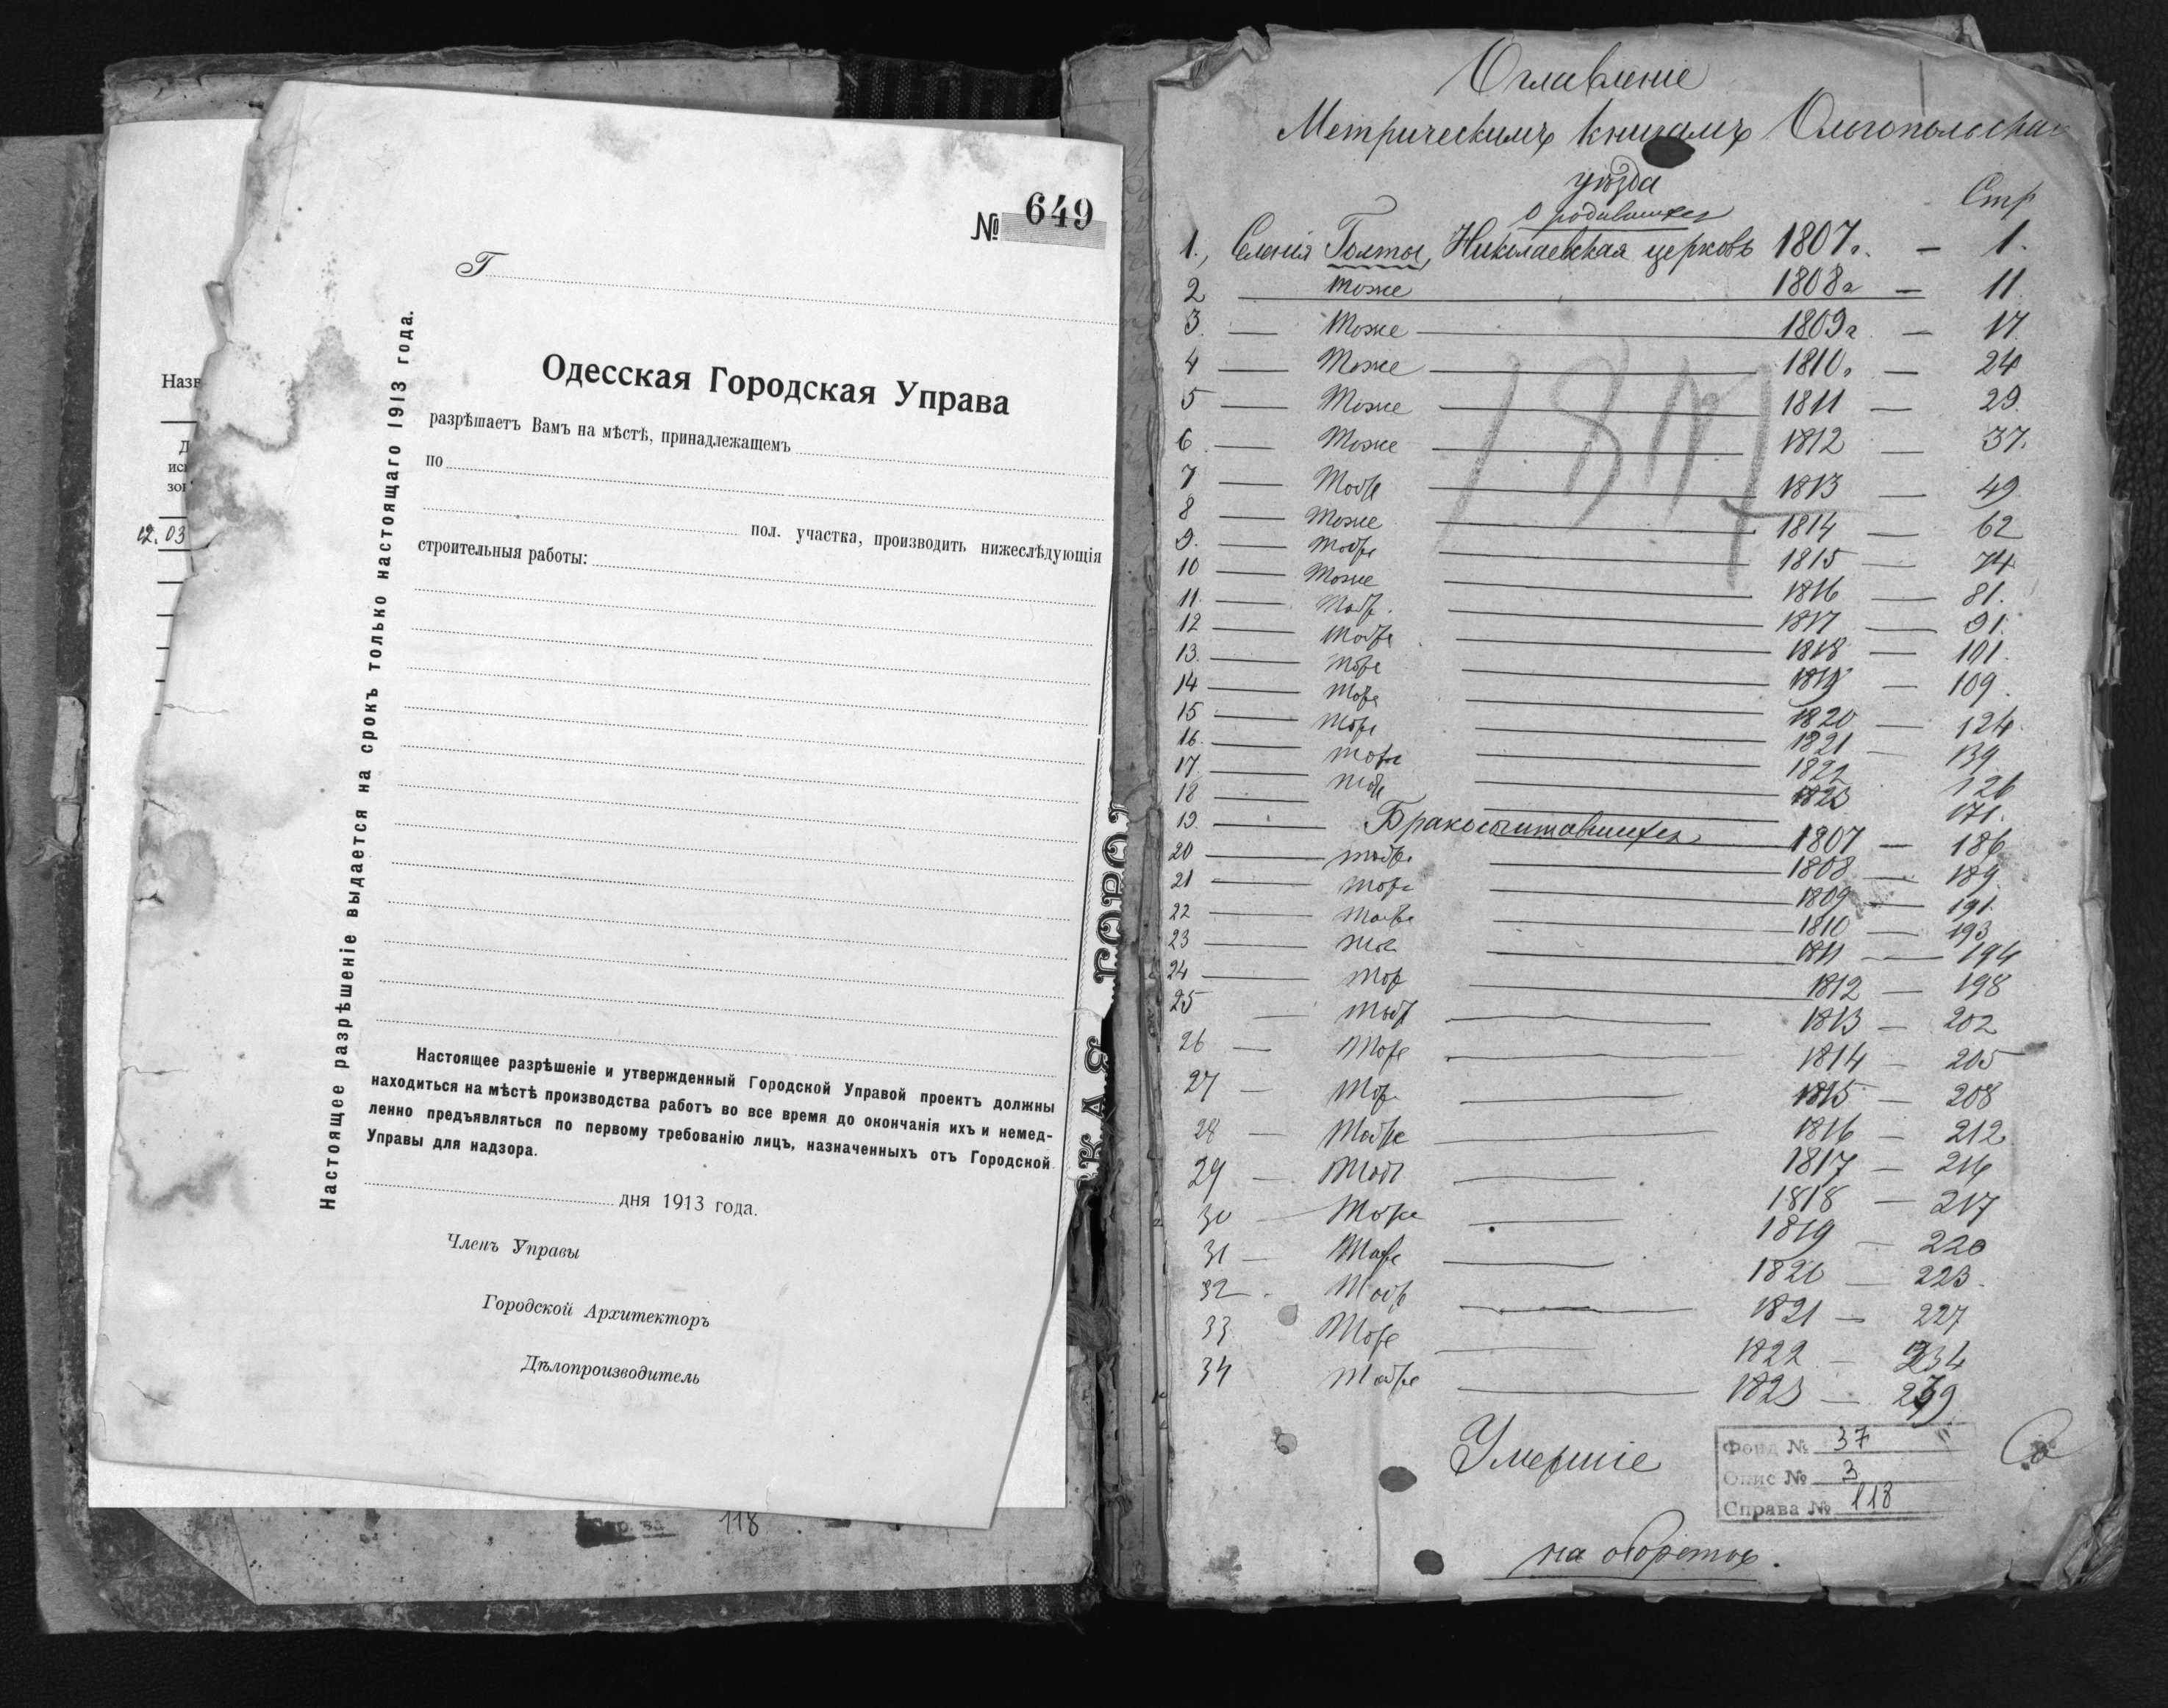 № 649
Г
Одесская Городская Управа
разрѣшаетъ Вамъ на мѣстѣ, принадлежащемъ
по
пол. участка, производить нижеслѣдующія
строительныя работы:
Настоящее разрѣшеніе и утвержденный Городской Управой проектъ должны
находиться на мѣстѣ производства работъ во все время до окончанія ихъ и немед-
ленно предъявляться по первому требованію лицъ, назначенныхъ отъ Городской
Управы для надзора.
дня 1913 года.
Членъ Управы
Городской Архитекторъ
Дѣлопроизводитель
Настоящее разрѣшеніе выдается на срокъ только настоящаго 1913 года.
Назв
Д
ис
зо
12.03
118
Оглавленіе
Метрическимъ книгамъ Ольгопольскаго
уѣзда
О родившихся Стр
1., Селенія Голты, Николаевская церковь 1807г. — 1.
2 — тоже — 1808г — 11.
3. — тоже — 1809г — 17.
4 — тоже — 1810г — 24
5 — тоже — 1811 — 29.
6 — тоже — 1812 — 37.
7 — тоже — 1813 — 49.
8 — тоже — 1814 — 62
9. — тоже — 1815 — 74.
10 — тоже — 1816 — 81.
11. — тоже — 1817 — 91.
12 — тоже — 1818 — 101.
13. — тоже — 1819 — 109.
14 — тоже — 1820 — 124.
15 — тоже — 1821 — 139
16. — тоже — 1822 126
17 — тоже — 1823 171.
18 —
19. — Бракосочитавшихся 1807 — 186
20 — тоже — 1808 — 189.
21 — тоже — 1809 — 191.
22 — тоже — 1810 — 193
23 — тоже — 1811 — 194
24 — тоже — 1812 — 198
25 — тоже — 1813 — 202
26 — тоже — 1814 — 205
27 — тоже — 1815 — 208
28 — тоже — 1816 — 212.
29 — тоже — 1817 — 216
30 — тоже — 1818 — 217
31 — тоже — 1819 — 220
32 — тоже — 1820 — 223.
33 тоже — 1821 — 227
34 тоже — 1822 — 234
1823 — 239.
Умершіе
Фонд № 37
Опис № 3
Справа № 118
на оборотѣ.